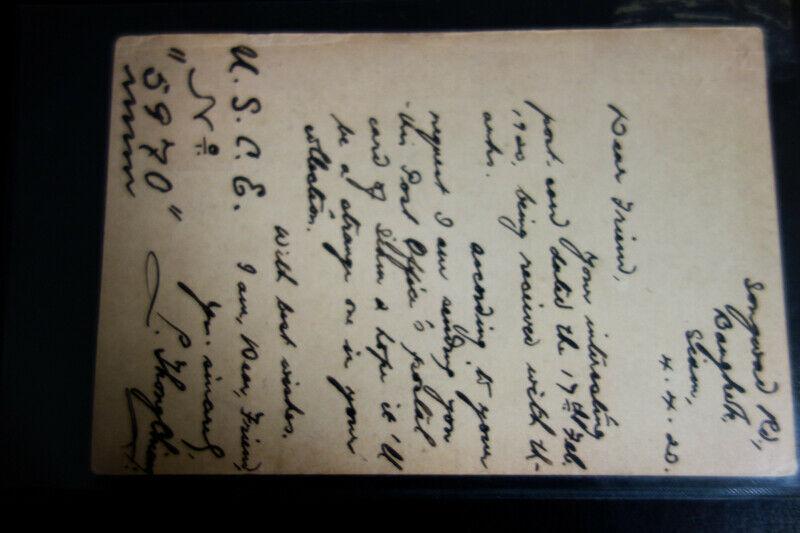 Songwad Rd.,
Bangkok,
Siam,
4.4.20.
Dear Friend,
Your interesting
post. card dated the 17th Feb.
1920, being received with
according to your
request I am sending you
this Post Office's postal
card of Siam & hope it'll
be a strange one in your
collection.
With best wishes.
I am, Dear, Friend,
Yrs. sincerely
L.
U. S. C. E.
No
"5970"